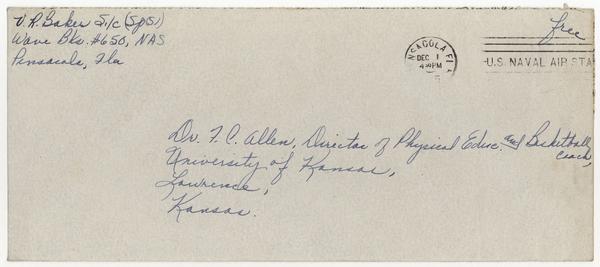 V. R. Baker S1/c (SpS1)
Wave Bks. #650, NAS
Pensacola, Fla
free
NSACOLA, FLA
DEC 1
4 30 PM
U.S. NAVAL AIR STA
Dr. F. C. Allen, Director of Physical Educ. and Basketball coach,
University of Kansas,
Lawrence,
Kansas.